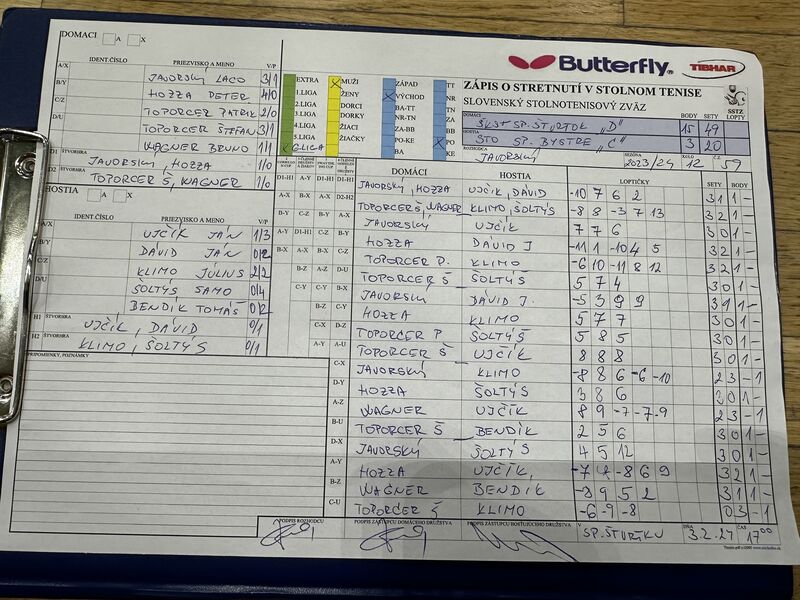 DOMACI A X
Butterfly TIBHAR
IDENT.ČÍSLO PRIEZVISKO A MENO V/P
A/X JAVORSKÝ LACO 3/1
B/Y HOZZA PETER 4/0
C/Z TOPORCER PATRIK 2/0
D/U TOPORCER ŠTEFAN 3/1
WAGNER BRUNO 1/1
D1 ŠTVORHRA JAVORSKÝ, HOZZA 1/0
D2 ŠTVORHRA TOPORCER Š, WAGNER 1/0
EXTRA
1.LIGA
2.LIGA
3.LIGA
4.LIGA
5.LIGA
x 6 LIGA
x MUŽI
ŽENY
DORCI
DORKY
ŽIACI
ŽIAČKY
ZÁPAD
x VÝCHOD
BA-TT
NR-TN
ZA-BB
PO-KE
TT
NR
TN
ZA
BB
x PO
KE
ZÁPIS O STRETNUTÍ V STOLNOM TENISE
SLOVENSKÝ STOLNOTENISOVÝ ZVÄZ
SSTZ
BODY SETY LOPTY
DOMÁCI ŠKST SP. ŠTVRTOK "D" 15 49
HOSTIA STO SP. BYSTRÉ "C" 3 20
ROZHODCA JAVORSKÝ SEZÓNA 2023/24 KOLO 12 ČZ 59
HOSTIA A X
IDENT.ČÍSLO PRIEZVISKO A MENO V/P
UJČÍK JÁN 1/3
DÁVID JÁN 0/2
KLIMO JÚLIUS 2/2
ŠOLTÝS SAMO 0/4
BENDÍK TOMÁŠ 0/2
H1 ŠTVORHRA UJČÍK, DÁVID 0/1
H2 ŠTVORHRA KLIMO, ŠOLTÝS 0/1
PRIPOMIENKY, POZNÁMKY
DOMÁCI HOSTIA LOPTIČKY SETY BODY
D1-H1 JAVORSKÝ, HOZZA UJČÍK, DÁVID -10 7 6 2 3 1 1 -
D2-H2 TOPORCER Š, WAGNER KLIMO, ŠOLTÝS -8 8 -3 7 13 3 2 1 -
A-X JAVORSKÝ UJČÍK 7 7 6 3 0 1 -
B-Y HOZZA DÁVID J -11 1 -10 4 5 3 2 1 -
C-Z TOPORCER P. KLIMO -6 10 -11 8 12 3 2 1 -
D-U TOPORCER Š ŠOLTÝS 5 7 4 3 0 1 -
A-Y JAVORSKÝ DÁVID J. -5 3 9 9 3 1 1 -
B-X HOZZA KLIMO 5 7 7 3 0 1 -
TOPORCER P ŠOLTÝS 5 8 5 3 0 1 -
TOPORCER Š UJČÍK 8 8 8 3 0 1 -
C-X JAVORSKÝ KLIMO -8 8 6 -6 -10 2 3 - 1
D-Y HOZZA ŠOLTÝS 3 8 6 3 0 1 -
A-Z WAGNER UJČÍK 8 9 -7 -7 -9 2 3 - 1
B-U TOPORCER Š BENDÍK 2 5 6 3 0 1 -
D-X JAVORSKÝ ŠOLTÝS 4 5 12 3 0 1 -
A-Y HOZZA UJČÍK -7 7 -8 6 9 3 2 1 -
B-Z WAGNER BENDÍK -3 9 5 2 3 1 1 -
C-U TOPORCER Š KLIMO -6 -9 -8 0 3 - 1
PODPIS ROZHODCU PODPIS ZÁSTUPCU DOMÁCEHO DRUŽSTVA PODPIS ZÁSTUPCU HOSŤUJÚCEHO DRUŽSTVA V SP. ŠTVRTKU DŇA 3.2.24 ČAS 17 00